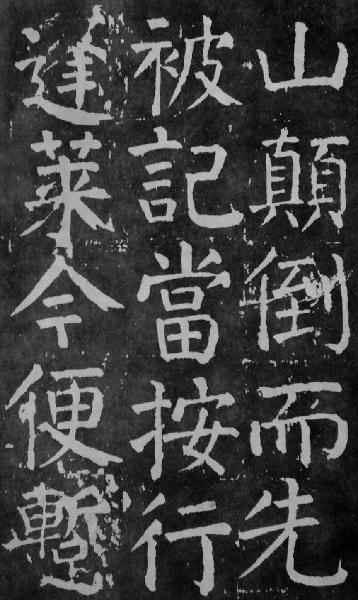 山顛倒而先
被記當按行
逢萊今便